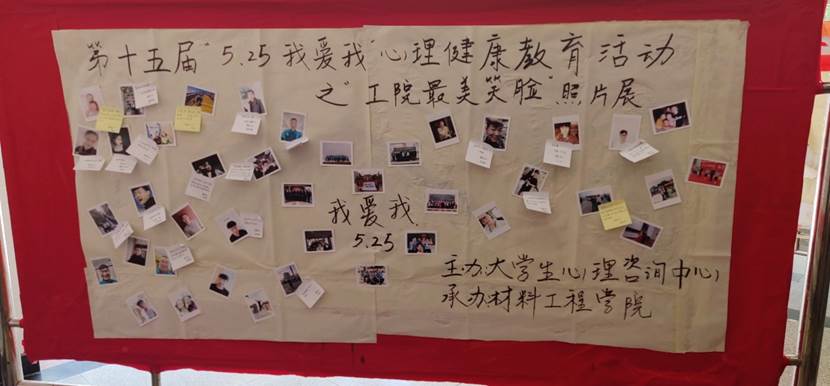 第十五届"5.25我爱我"心理健康教育活动
之"工院最美笑脸"照片展
我爱我
5.25
主办:大学生心理咨询中心
承办:材料工程学院